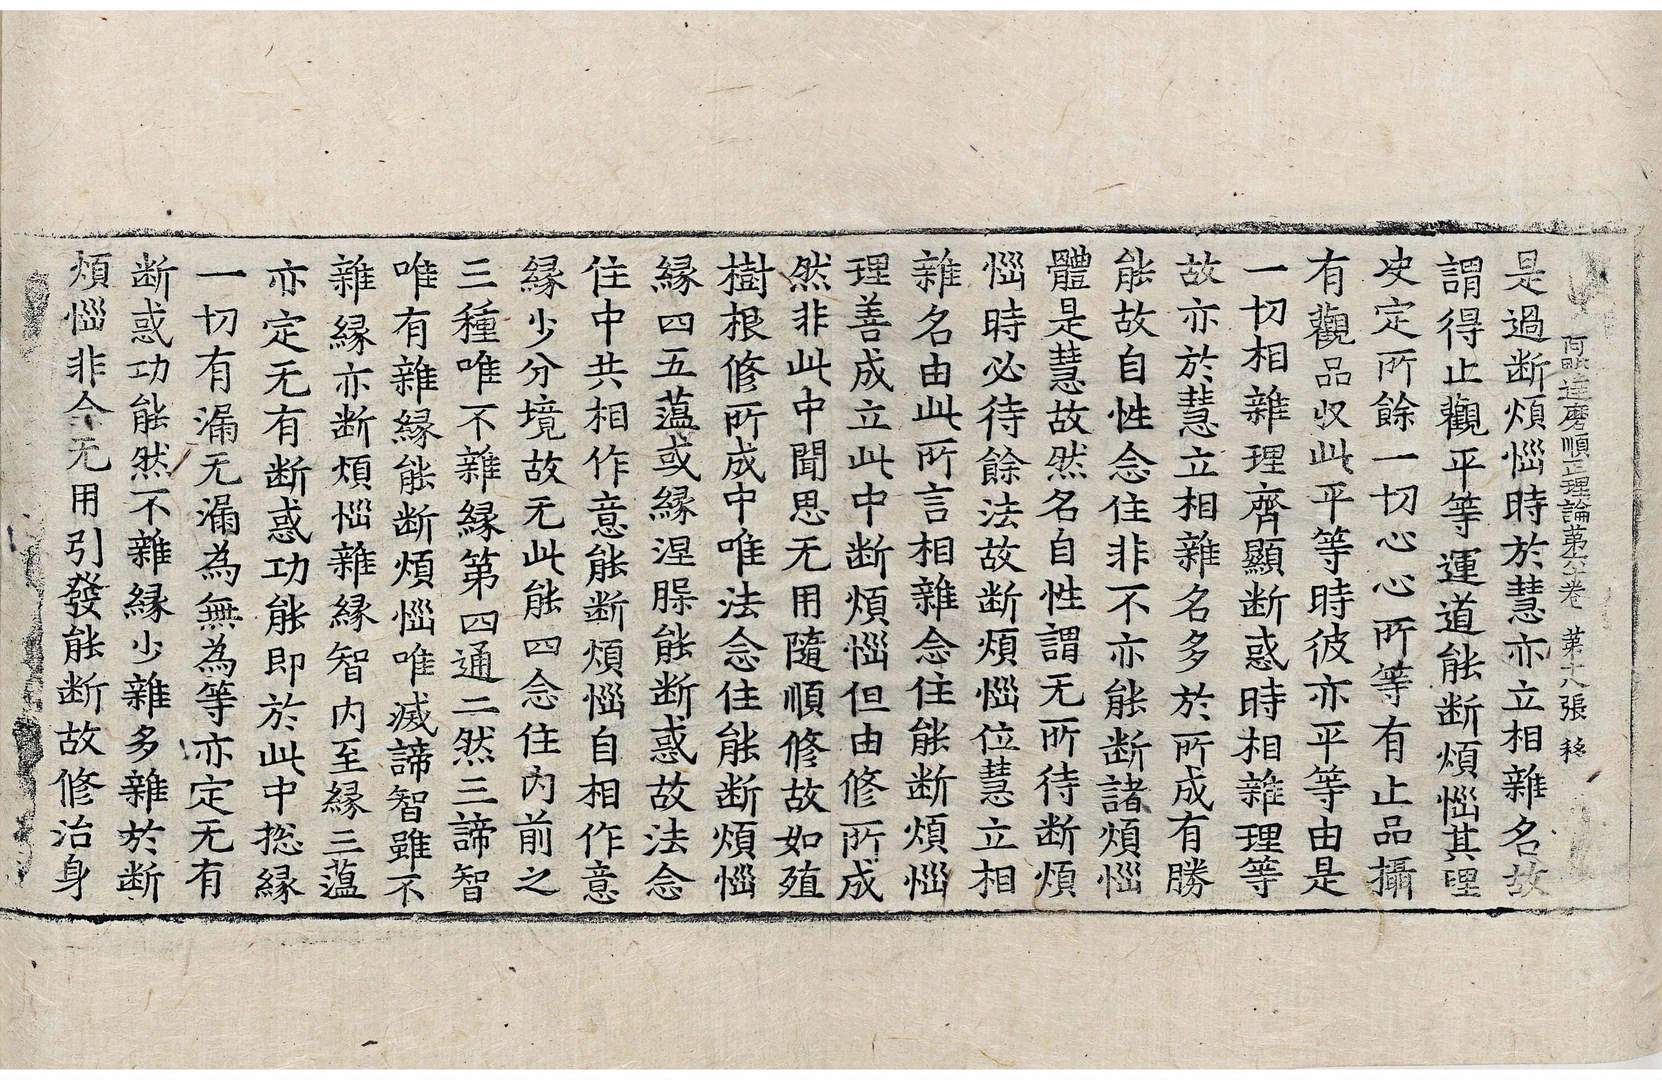 阿毗達磨順正理論第六十卷 第十八張 移
是過断煩惱時於慧亦立相雜名故
謂得止觀平等運道能断煩惱其理
決定所餘一切心心所等有止品攝
有觀品収此平等時彼亦平等由是
一切相雜理齊顯断惑時相雜理等
故亦於慧立相雜名多於所成有勝
能故自性念住非不亦能断諸煩惱
體是慧故然名自性謂无所待断煩
惱時必待餘法故断煩惱位慧立相
雜名由此所言相雜念住能断煩惱
理善成立此中断煩惱但由修所成
然非此中聞思无用隨順修故如殖
樹根修所成中唯法念住能断煩惱
縁四五蕰或縁涅槃能断惑故法念
住中共相作意能断煩惱自相作意
縁少分境故无此能四念住內前之
三種唯不雜縁第四通二然三諦智
唯有雜縁能断煩惱唯滅諦智雖不
雜縁亦断煩惱雜縁智內至縁三蕰
亦定无有断惑功能即於此中捴縁
一切有漏无漏為無為等亦定无有
断惑功能然不雜縁少雜多雜於断
煩惱非全无用引發能断故修治身